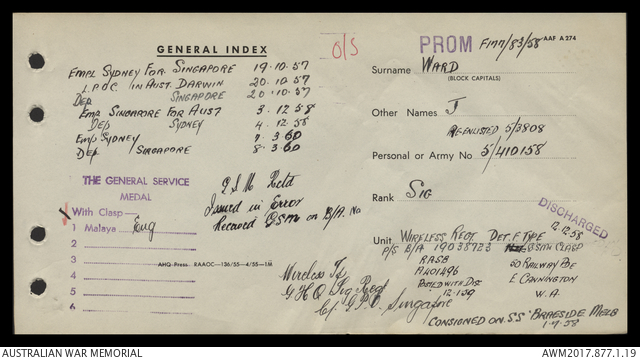 GENERAL INDEX
O/S
PROM FMN/83/58 AAF A 274
Surname WARD
(BLOCK CAPITALS)
Other Names J
REENLISTED 5/3808
Personal or Army No 5/410158
Rank SIG
DISCHARGED
12.12.58
Unit WIRELESS REGT DET F TYPE
P/S B/A 19038723 CLASP
RASB 50 RAILWAY PDE
A401496 E CANNINGTON
W.A.
CONSIGNED ON SS "BRAESIDE MELB
1.7.58
EMPL SYDNEY FOR SINGAPORE 19.10.57
L.P.O.C. IN AUST. DARWIN 20.10.57
DEP SINGAPORE 20.10.57
EMP SINGAPORE FOR AUST 3.12.58
DEP SYDNEY 4.12.58
EMP SYDNEY 7.3.60
DEP SINGAPORE 8.3.60
THE GENERAL SERVICE
MEDAL
With Clasp
1 Malaya Eng
2
3
4
5
6
GSM Retd
Issued in Error
Received GSM on B/A. No
AHQ Press RAAOC—136/55—4/55—1M
Wireless Tp
GHQ Sig Regt
C/- GPO Singapore
AUSTRALIAN WAR MEMORIAL
AWM2017.877.1.19